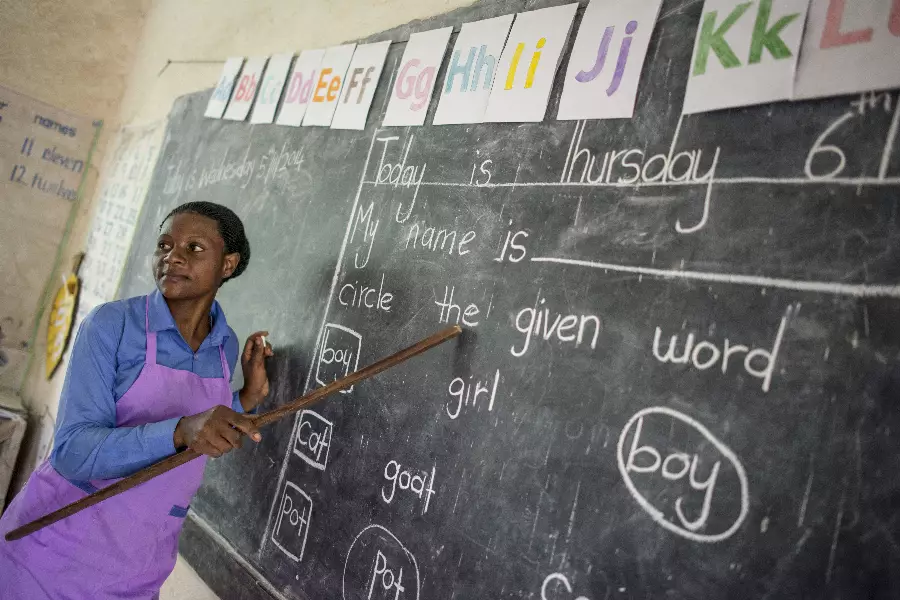 Aa Bb Cc Dd Ee Ff Gg Hh Ii Jj Kk L
names
11 eleven
12 twelve
Today is Wednesday 5th
Today is Thursday 6th
My name is
circle the given word
boy girl boy
cat goat
pot pot